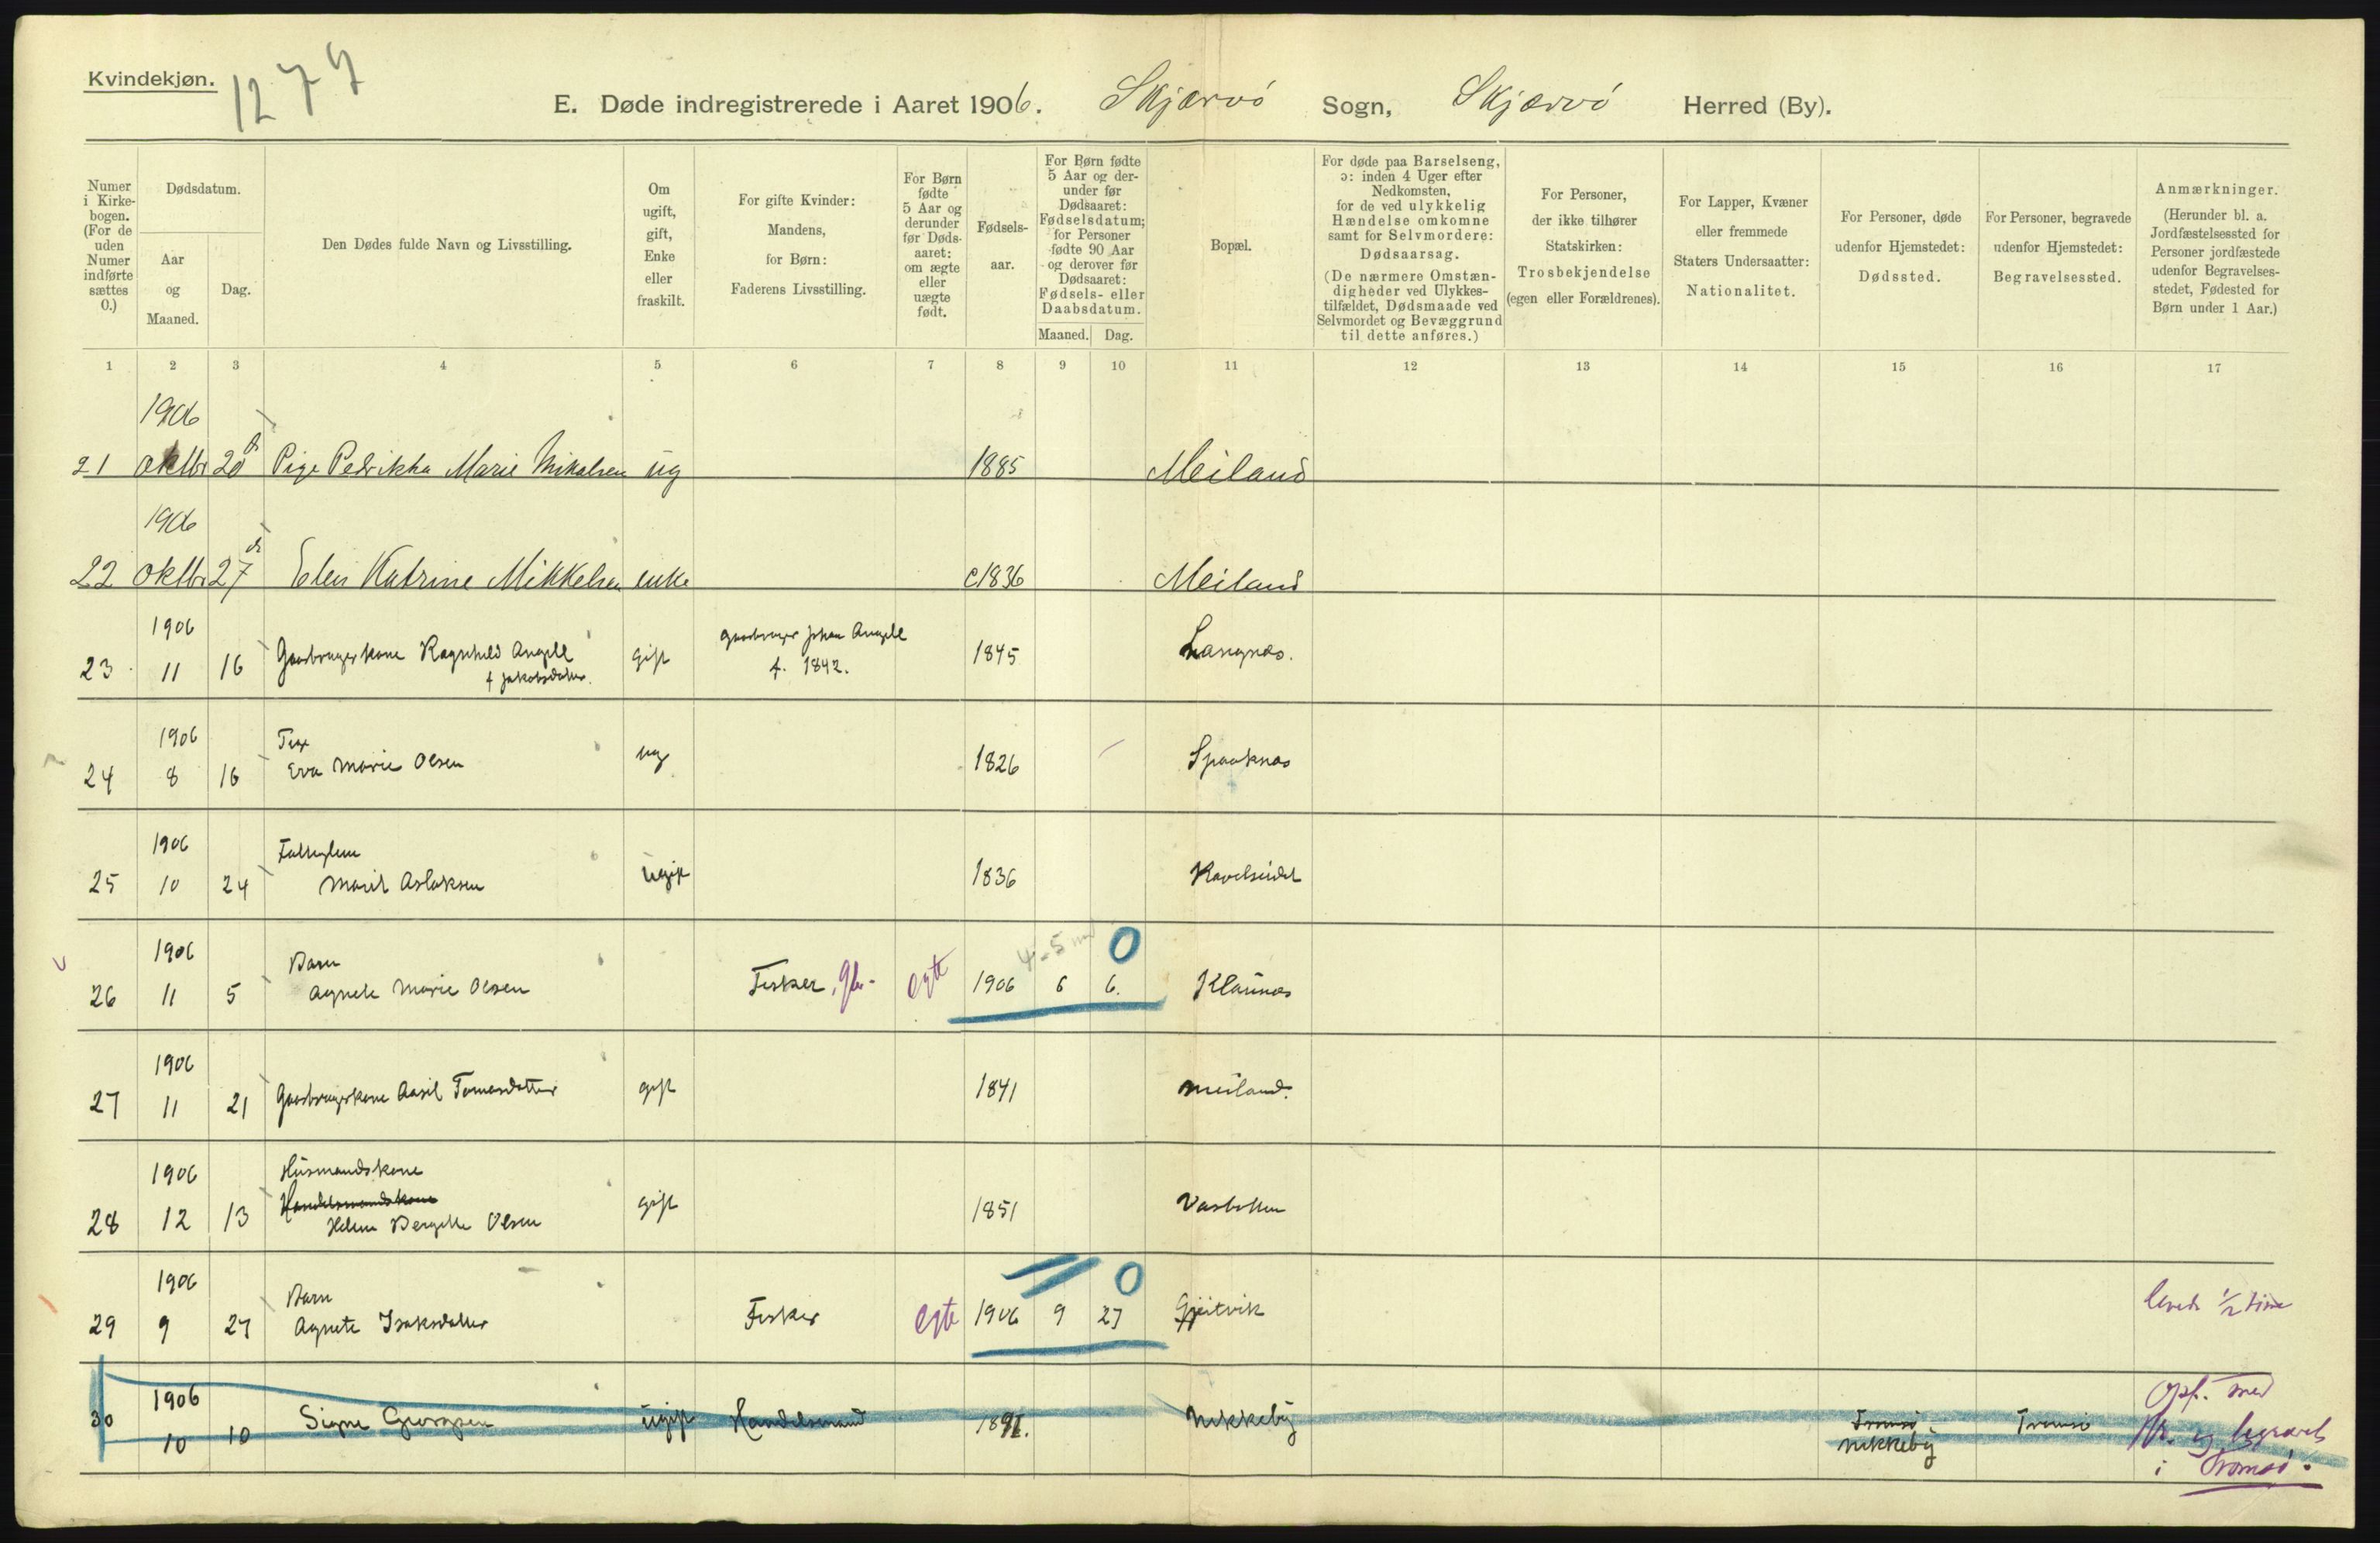 Kvindekjøn.
1277
E. Døde indregistrerede i Aaret 1906. Skjærvö Sogn, Skjærvö Herred (By).
Numer i Kirkebogen. (For de uden Numer indførte sættes 0.)
Dødsdatum.
Aar og Maaned.
Dag.
Den Dødes fulde Navn og Livsstilling.
Om ugift, gift, Enke eller fraskilt.
For gifte Kvinder: Mandens, for Børn: Faderens Livsstilling.
For Børn fødte 5 Aar og derunder før Dødsaaret: om ægte eller uægte født.
Fødselsaar.
For Børn fødte 5 Aar og derunder før Dødsaaret: Fødselsdatum; for Personer fødte 90 Aar og derover før Dødsaaret: Fødsels- eller Daabsdatum.
Maaned. Dag.
Bopæl.
For døde paa Barselseng, ɔ: inden 4 Uger efter Nedkomsten, for de ved ulykkelig Hændelse omkomne samt for Selvmordere: Dødsaarsag. (De nærmere Omstændigheder ved Ulykkestilfældet, Dødsmaade ved Selvmordet og Bevæggrund til dette anføres.)
For Personer, der ikke tilhører Statskirken: Trosbekjendelse (egen eller Forældrenes).
For Lapper, Kvæner eller fremmede Staters Undersaatter: Nationalitet.
For Personer, døde udenfor Hjemstedet: Dødssted.
For Personer, begravede udenfor Hjemstedet: Begravelsessted.
Anmærkninger. (Herunder bl. a. Jordfæstelsessted for Personer jordfæstede udenfor Begravelsesstedet, Fødested for Børn under 1 Aar.)
1 2 3 4 5 6 7 8 9 10 11 12 13 14 15 16 17
1906
21 oktbr 20 Pige Pedrikka Marie Mikalsen ug 1885 Meiland
1906
22 oktbr 27 Elen Katrine Mikkelsen enke c1836 Meiland
1906
23 11 16 Gaardbrugerkone Ragnhild Angell gift Gaardbruger Johan Angell 1845 Langnæs.
f Jakobsdatter. f. 1842.
1906
24 8 16 Eva Marie Olsen ug 1826 Spaaknæs
1906
25 10 24 Marit Aslaksen ugift 1836 Ravelseidet
1906 Barn 4-5 md 0
26 11 5 Agnete Marie Olsen Fisker, gbr. egte 1906 6 6. Klaunæs
1906
27 11 21 Gaardbrugerkone Aasil Tomasdatter gift 1841 Meiland.
1906 Husmandskone
Handelsmandskone
28 12 13 Helene Bergitte Olsen gift 1851 Vasbotten
1906 Barn 0
29 9 27 Agnete Isaksdatter Fisker egte 1906 9 27 Gjeitvik levet 1/2 time
1906
30 10 10 Signe Georgsen ugift Handelsmand 1891. Nikkeby Tromsö Tromsö
Nikkeby
Opf. med
Nr. og begravet
i Tromsö.